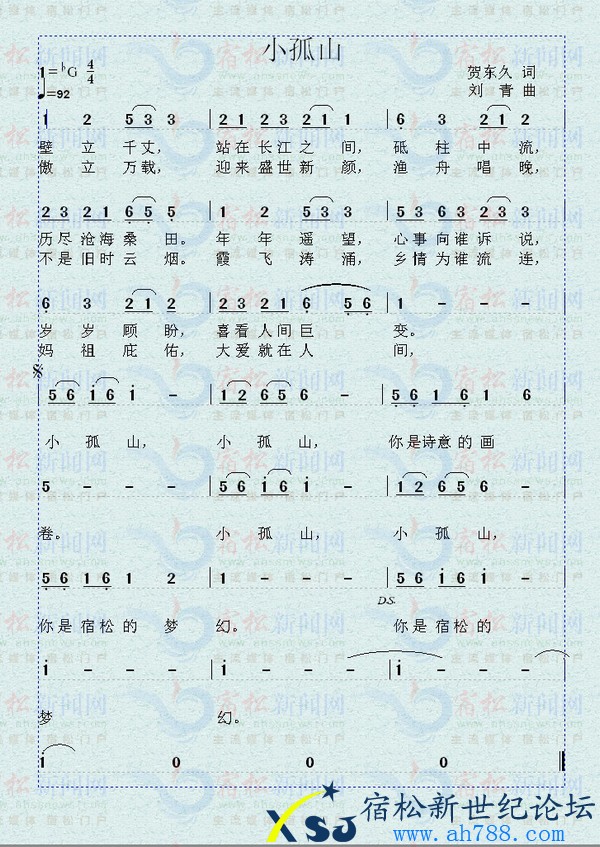 小孤山
1=♭G 4/4
♩=92
贺东久 词
刘青 曲
1 2 5 3 3 | 2 1 2 3 2 1 1 | 6 3 2 1 2
壁立千丈，站在长江之间，砥柱中流，
傲立万载，迎来盛世新颜，渔舟唱晚，
2 3 2 1 6 5 5 | 1 2 5 3 3 | 5 3 6 3 2 3 3
历尽沧海桑田。年年遥望，心事向谁诉说，
不是旧时云烟。霞飞涛涌，乡情为谁流连，
6 3 2 1 2 | 2 3 2 1 6 5 6 | 1 - - -
岁岁顾盼，喜看人间巨变。
妈祖庇佑，大爱就在人间，
5 6 i 6 i - | 1 2 6 5 5 - | 5 6 1 6 1 6
小孤山，小孤山，你是诗意的画
5 - - - | 5 6 i 6 i - | 1 2 6 5 6 -
卷。小孤山，小孤山，
5 6 1 6 1 2 | 1 - - - | 5 6 i 6 i -
D.S.
你是宿松的梦幻。你是宿松的
i - - - | i - - - | i - - -
梦幻。
i 0 0 0
宿松新闻网
主流媒体 宿松门户
XSJ
宿松新世纪论坛
www.ah788.com